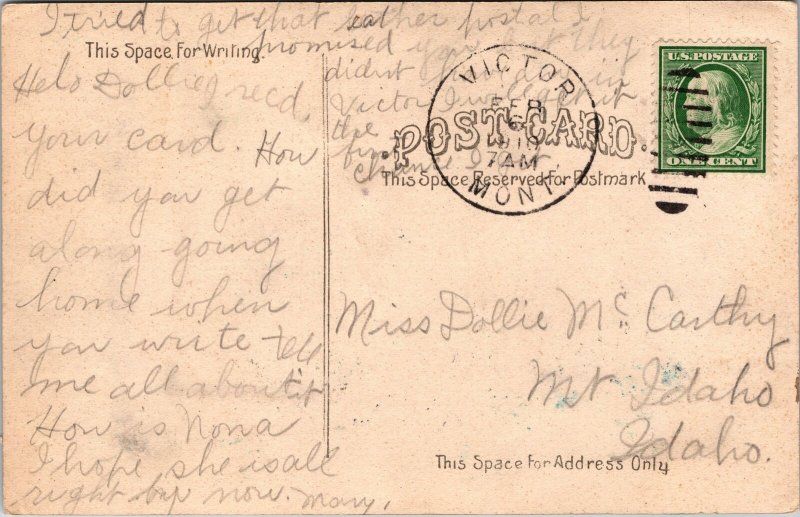 This Space For Writing.
Helo Dollie I recd,
your card. How
did you get
along going
home when
you write tell
me all about it
How is Nona
I hope she is all
right by now. Mary,
I tried to get that leather postal I
promised you but they
didn't have any in
Victor I will get it
the
first
chance I
POST CARD.
This Space Reserved For Postmark
VICTOR
FEB
6
1910
7 AM
MONT.
U.S. POSTAGE
ONE CENT
Miss Dollie Mc Carthy
Mt Idaho
Idaho.
This Space For Address Only